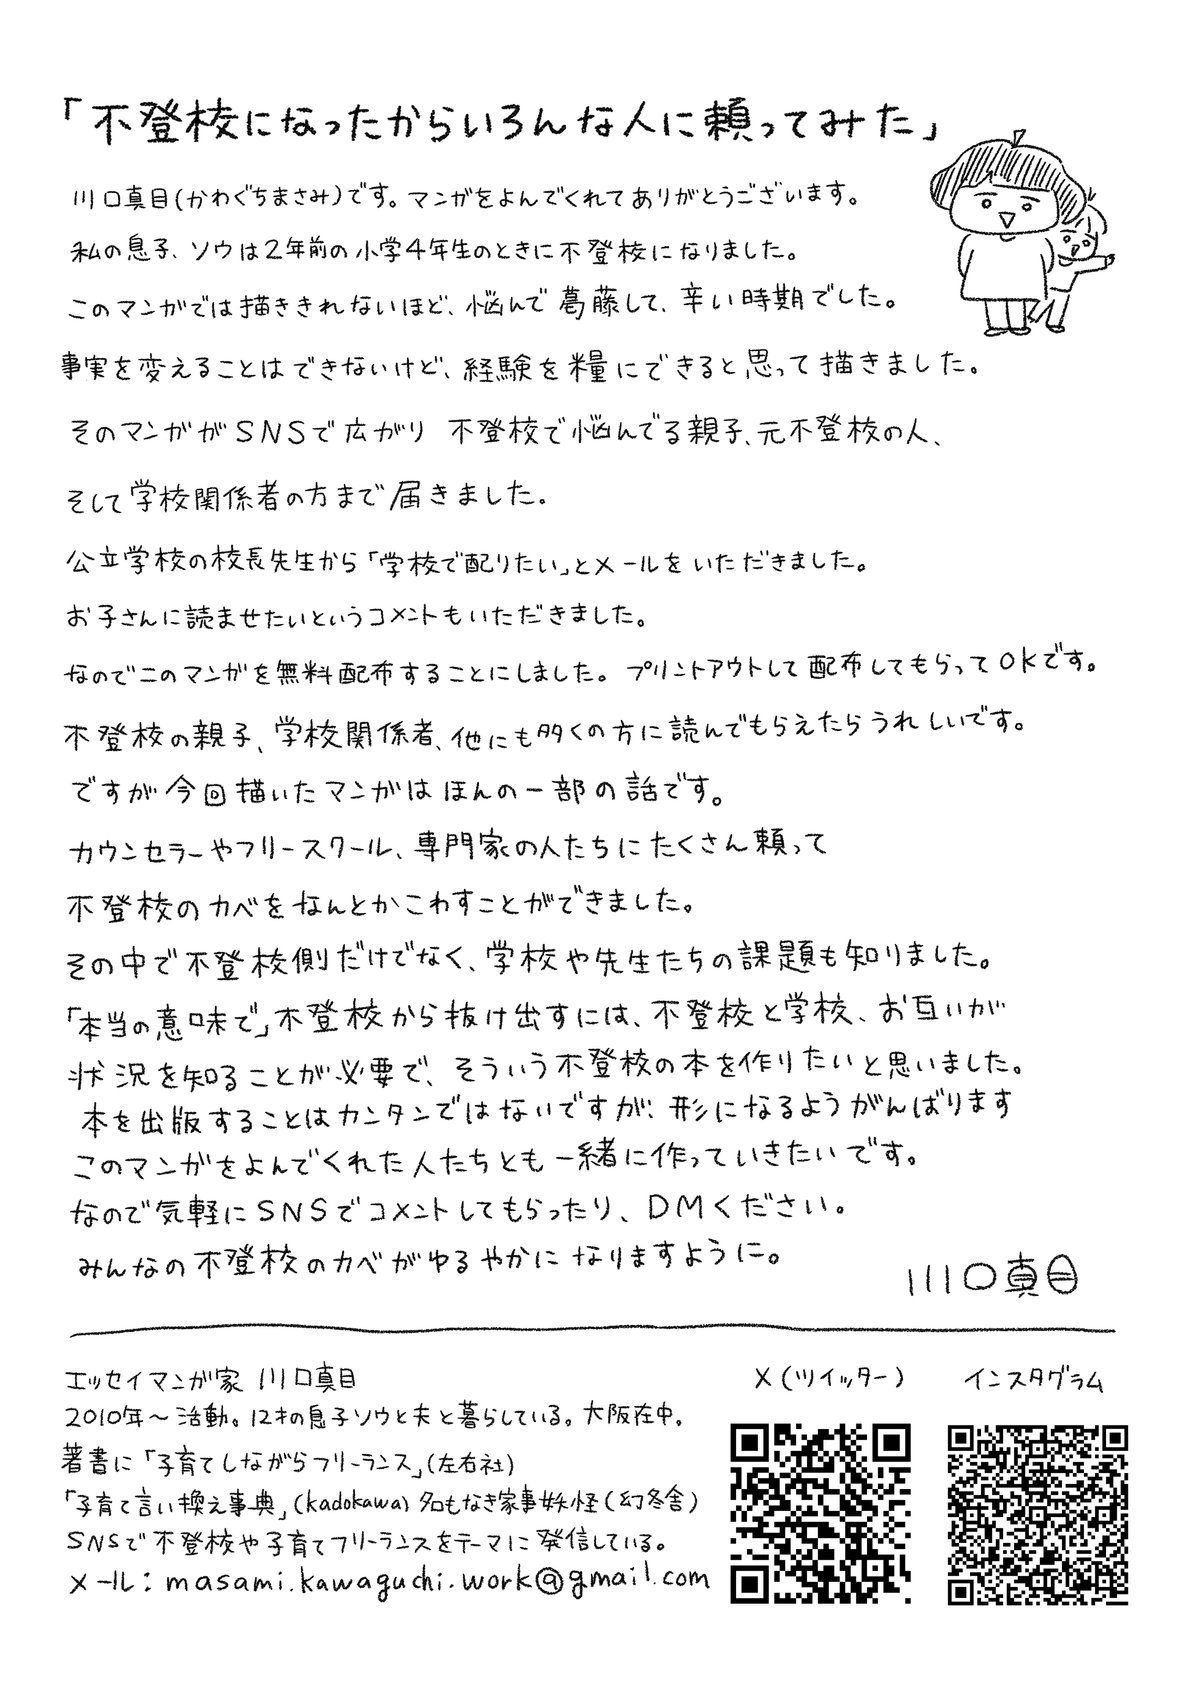 「不登校になったからいろんな人に頼ってみた」
川口真目(かわぐちまさみ)です。マンガをよんでくれてありがとうございます。
私の息子、ソウは2年前の小学4年生のときに不登校になりました。
このマンガでは描ききれないほど、悩んで葛藤して、辛い時期でした。
事実を変えることはできないけど、経験を糧にできると思って描きました。
そのマンガがSNSで広がり 不登校で悩んでる親子、元不登校の人、
そして学校関係者の方まで届きました。
公立学校の校長先生から「学校で配りたい」とメールをいただきました。
お子さんに読ませたいというコメントもいただきました。
なのでこのマンガを無料配布することにしました。プリントアウトして配布してもらってOKです。
不登校の親子、学校関係者、他にも多くの方に読んでもらえたらうれしいです。
ですが今回描いたマンガはほんの一部の話です。
カウンセラーやフリースクール、専門家の人たちにたくさん頼って
不登校のカベをなんとかこわすことができました。
その中で不登校側だけでなく、学校や先生たちの課題も知りました。
「本当の意味で」不登校から抜け出すには、不登校と学校、お互いが
状況を知ることが必要で、そういう不登校の本を作りたいと思いました。
本を出版することはカンタンではないですが、形になるようがんばります
このマンガをよんでくれた人たちとも一緒に作っていきたいです。
なので気軽にSNSでコメントしてもらったり、DMください。
みんなの不登校のカベがゆるやかになりますように。
川口真目
エッセイマンガ家 川口真目
2010年〜活動。12才の息子ソウと夫と暮らしている。大阪在中。
著書に「子育てしながらフリーランス」(左右社)
「子育て言い換え事典」(kadokawa)名もなき家事妖怪(幻冬舎)
SNSで不登校や子育てフリーランスをテーマに発信している。
メール:masami.kawaguchi.work@gmail.com
X(ツイッター)
インスタグラム